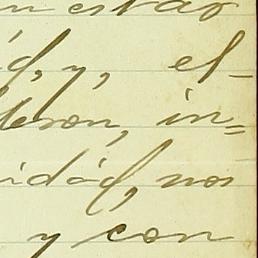 n estar
d, y, el-
bron, in=
idád, nos
y con